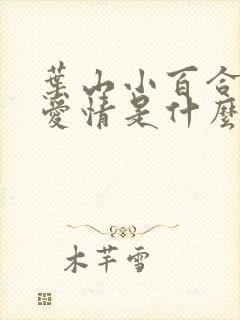 葉山小百合
愛情是什麼
木芊雪